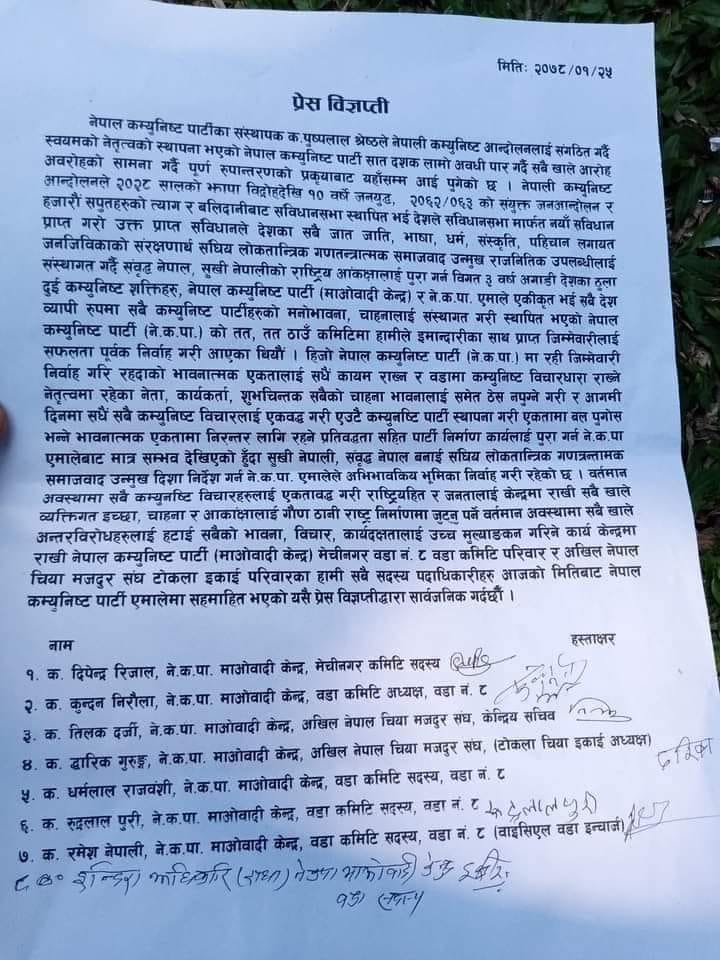 मितिः २०७८/०१/२५
प्रेस विज्ञप्ती
नेपाल कम्युनिष्ट पार्टीका संस्थापक क.पुष्पलाल श्रेष्ठले नेपाली कम्युनिष्ट आन्दोलनलाई संगठित गर्दै
स्वयमको नेतृत्वको स्थापना भएको नेपाल कम्युनिष्ट पार्टी सात दशक लामो अवधी पार गर्दै सबै खाले आरोह
अवरोहको सामना गर्दै पूर्ण रुपान्तरणको प्रकृयाबाट यहाँसम्म आई पुगेको छ । नेपाली कम्युनिष्ट
आन्दोलनले २०२८ सालको झापा विद्रोहदेखि १० वर्षे जनयुद्ध, २०६२/०६३ को संयुक्त जनआन्दोलन र
हजारौं सपुतहरुको त्याग र बलिदानीबाट संविधानसभा स्थापित भई देशले संविधानसभा मार्फत नयाँ संविधान
प्राप्त गरो उक्त प्राप्त संविधानले देशका सबै जात जाति, भाषा, धर्म, संस्कृति, पहिचान लगायत
जनजिविकाको संरक्षणार्थ संघिय लोकतान्त्रिक गणतन्त्रात्मक समाजवाद उन्मुख राजनितिक उपलब्धीलाई
संस्थागत गर्दै संवृद्ध नेपाल, सुखी नेपालीको राष्ट्रिय आंकक्षालाई पुरा गर्न विगत ३ वर्ष अगाडी देशका ठुला
दुई कम्युनिष्ट शक्तिहरु, नेपाल कम्युनिष्ट पार्टी (माओवादी केन्द्र) र ने.क.पा. एमाले एकीकृत भई सबै देश
व्यापी रुपमा सबै कम्युनिष्ट पार्टीहरुको मनोभावना, चाहनालाई संस्थागत गरी स्थापित भएको नेपाल
कम्युनिष्ट पार्टी (ने.क.पा.) को तत, तत ठाउँ कमिटिमा हामीले इमान्दारीका साथ प्राप्त जिम्मेवारीलाई
सफलता पूर्वक निर्वाह गरी आएका थियौं । हिजो नेपाल कम्युनिष्ट पार्टी (ने.क.पा.) मा रही जिम्मेवारी
निर्वाह गरि रहदाको भावनात्मक एकतालाई सधैं कायम राख्न र वडामा कम्युनिष्ट विचारधारा राख्ने
नेतृत्वमा रहेका नेता, कार्यकर्ता, शुभचिन्तक सबैको चाहना भावनालाई समेत ठेस नपुग्ने गरी र आगमी
दिनमा सधैं सबै कम्युनिष्ट विचारलाई एकवद्ध गरी एउटै कम्युनष्टि पार्टी स्थापना गरी एकतामा बल पुगोस
भन्ने भावनात्मक एकतामा निरन्तर लागि रहने प्रतिवद्धता सहित पार्टी निर्माण कार्यलाई पुरा गर्न ने.क.पा
एमालेबाट मात्र सम्भव देखिएको हुँदा सुखी नेपाली, संवृद्ध नेपाल बनाई संघिय लोकतान्त्रिक गणत्रन्तामक
समाजवाद उन्मुख दिशा निर्देश गर्न ने.क.पा. एमालेले अभिभावकिय भूमिका निर्वाह गरी रहेको छ । वर्तमान
अवस्थामा सबै कम्युनष्टि विचारहरुलाई एकतावद्ध गरी राष्ट्रियहित र जनतालाई केन्द्रमा राखी सबै खाले
व्यक्तिगत इच्छा, चाहना र आकांक्षालाई गौण ठानी राष्ट्र निर्माणमा जुटनु पर्ने वर्तमान अवस्थामा सबै खाले
अन्तरविरोधहरुलाई हटाई सबैको भावना, विचार, कार्यदक्षतालाई उच्च मुल्याङकन गरिने कार्य केन्द्रमा
राखी नेपाल कम्युनिष्ट पार्टी (माओवादी केन्द्र) मेचीनगर वडा नं. ८ वडा कमिटि परिवार र अखिल नेपाल
चिया मजदुर संघ टोकला इकाई परिवारका हामी सबै सदस्य पदाधिकारीहरु आजको मितिबाट नेपाल
कम्युनिष्ट पार्टी एमालेमा सहमाहित भएको यसै प्रेस विज्ञप्तीद्वारा सार्वजनिक गर्दछौं ।
नाम हस्ताक्षर
१. क. दिपेन्द्र रिजाल, ने.क.पा. माओवादी केन्द्र, मेचीनगर कमिटि सदस्य
२. क. कुन्दन निरौला, ने.क.पा. माओवादी केन्द्र, वडा कमिटि अध्यक्ष, वडा नं. ८
३. क. तिलक दर्जी, ने.क.पा. माओवादी केन्द्र, अखिल नेपाल चिया मजदुर संघ, केन्द्रिय सचिव
४. क. द्धारिक गुरुङ, ने.क.पा. माओवादी केन्द्र, अखिल नेपाल चिया मजदुर संघ, (टोकला चिया इकाई अध्यक्ष)
५. क. धर्मलाल राजवंशी, ने.क.पा. माओवादी केन्द्र, वडा कमिटि सदस्य, वडा नं. ८
६. क. रुद्रलाल पुरी, ने.क.पा. माओवादी केन्द्र, वडा कमिटि सदस्य, वडा नं. ८ रुद्रलाल पुरी
७. क. रमेश नेपाली, ने.क.पा. माओवादी केन्द्र, वडा कमिटि सदस्य, वडा नं. ८ (वाइसिएल वडा इन्चार्ज)
८ क० इन्दिरा अधिकारी (राधा) नेकपा माओवादी केन्द्र
वडा सदस्य